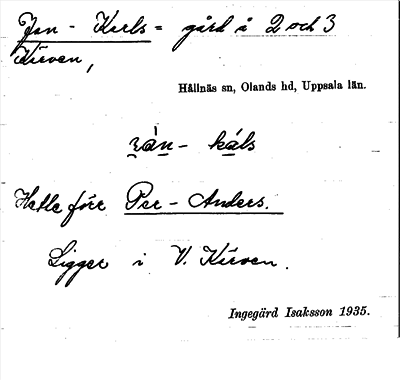 Jan-Karls = gård å 2 och 3
Kärven,
Hållnäs sn, Olands hd, Uppsala län.
ràn- káls
Hette förr Per-Anders.
Ligger i V. Kärven.
Ingegärd Isaksson 1935.